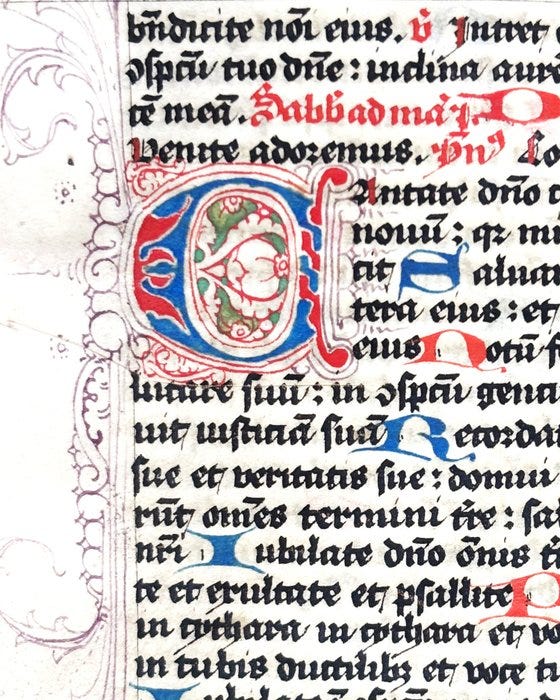 bñdicite nõi eius. v̄ Intret
ɔspcũ tuo dñe : inclina aurē
cē meã. Sabb̄ad mãt.
Venite adoremus. p̄s
CAntate dño
nouũ : qz mi
cit Saluauit
tera eius : et
eius Notũ f
lutare suũ : in ɔspcũ genti
uit iusticiã suã Recorda
sue et veritatis sue : domui
rũt om̃es termini t̄re : sa
nr̃i Iubilate dño õnis t̄
te et exultate et psallite
in cythara in cythara et vo
in tubis ductilibz et voce t
Iubilate